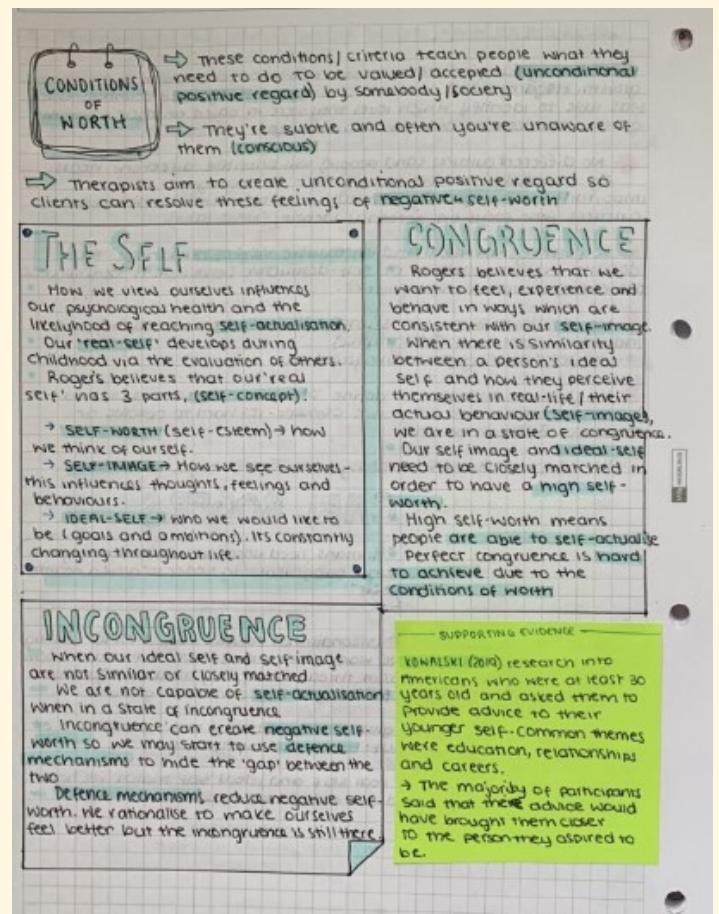 CONDITIONS
OF
WORTH
⇒ These conditions/criteria teach people what they
need to do to be valued/accepted (unconditional
positive regard) by somebody/society
⇒ They're subtle and often you're unaware of
them (conscious)
⇒ Therapists aim to create unconditional positive regard so
clients can resolve these feelings of negative self-worth
THE SELF
How we view ourselves influences
our psychological health and the
likelyhood of reaching self-actualisation.
Our 'real-self' develops during
childhood via the evaluation of others.
Roger's believes that our 'real
self' has 3 parts, (self-concept):
→ SELF-WORTH (self-esteem) → how
we think of ourself.
→ SELF-IMAGE → How we see ourselves -
this influences thoughts, feelings and
behaviours.
→ IDEAL-SELF → who we would like to
be (goals and ambitions). Its constantly
changing throughout life.
CONGRUENCE
Rogers believes that we
want to feel, experience and
behave in ways which are
consistent with our self-image.
When there is similarity
between a person's ideal
self and how they perceive
themselves in real-life/their
actual behaviour (self-image),
we are in a state of congruence.
Our self image and ideal-self
need to be closely matched in
order to have a high self-
worth.
High self-worth means
people are able to self-actualise
Perfect congruence is hard
to achieve due to the
conditions of worth
INCONGRUENCE
When our ideal self and self-image
are not similar or closely matched.
We are not capable of self-actualisation
when in a state of incongruence
Incongruence can create negative self-
worth so we may start to use defence
mechanisms to hide the 'gap' between the
two
Defence mechanisms reduce negative self-
worth. We rationalise to make ourselves
feel better but the incongruence is still there.
SUPPORTING EVIDENCE
KOWALSKI (2019) research into
Americans who were at least 30
years old and asked them to
provide advice to their
younger self - common themes
were education, relationships
and careers.
→ The majority of participants
said that there advice would
have brought them closer
to the person they aspired to
be.